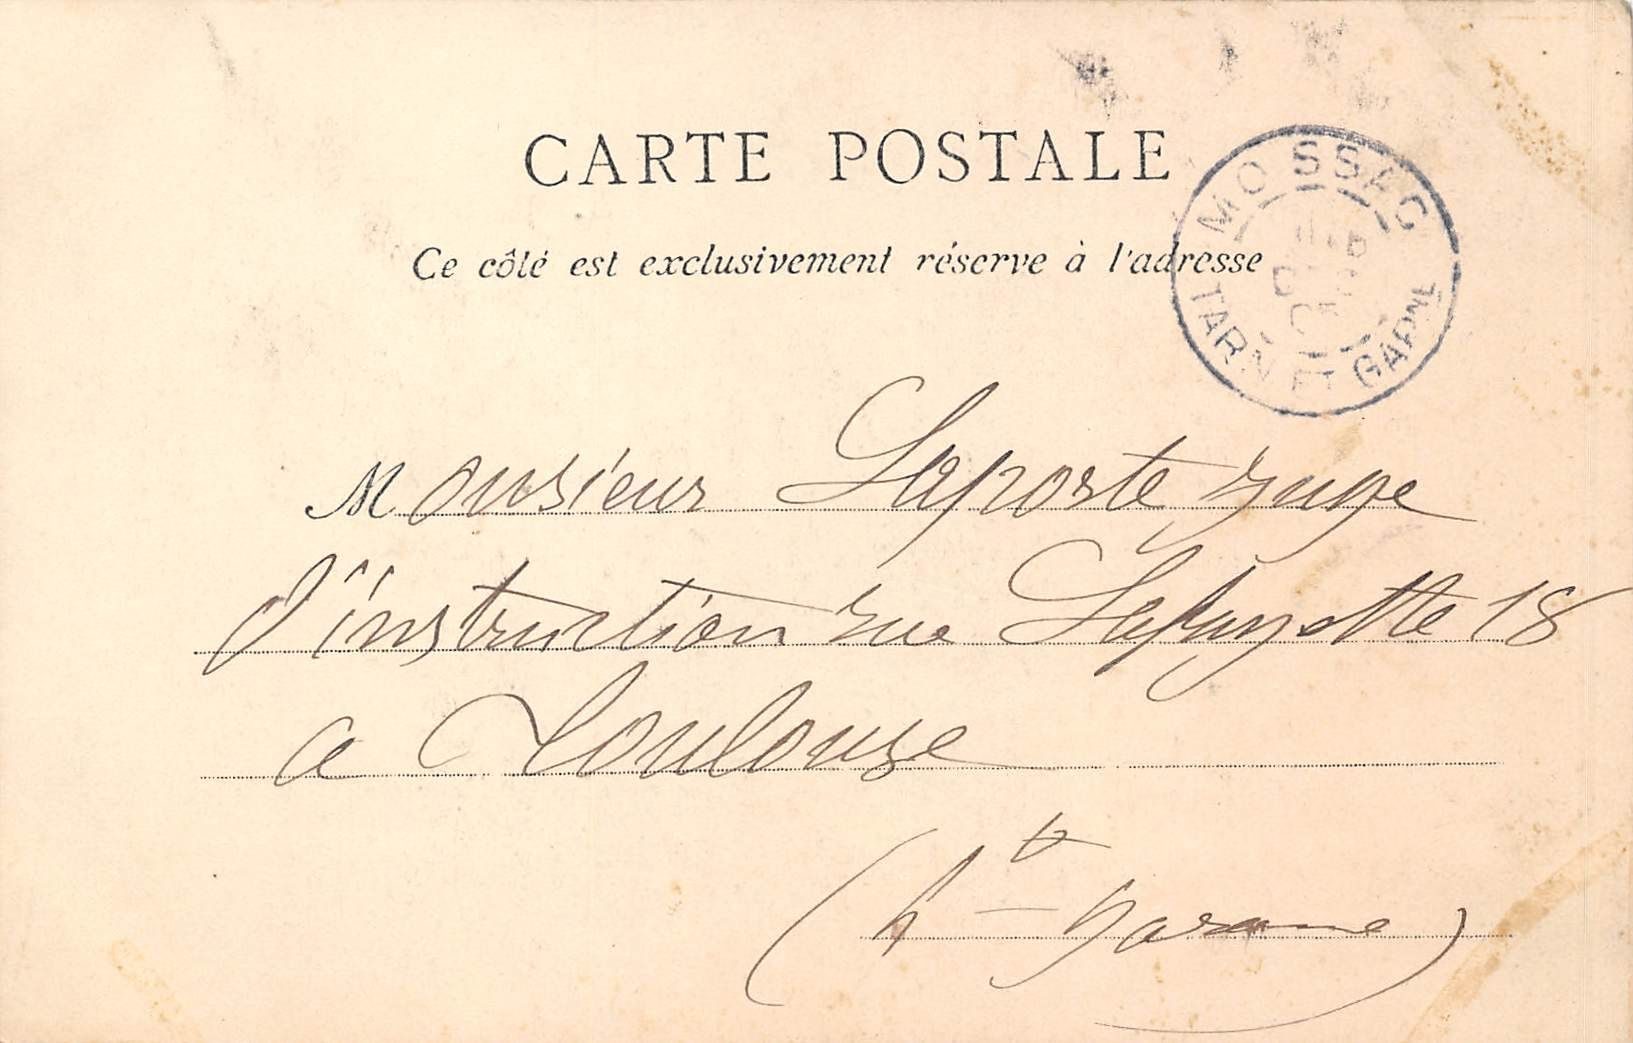 CARTE POSTALE
Ce côté est exclusivement réservé à l'adresse
MOISSAC
TARN ET GARNE
Monsieur Laporte juge
d'instruction rue Lafayette 18
a Toulouse
(hte Garonne)